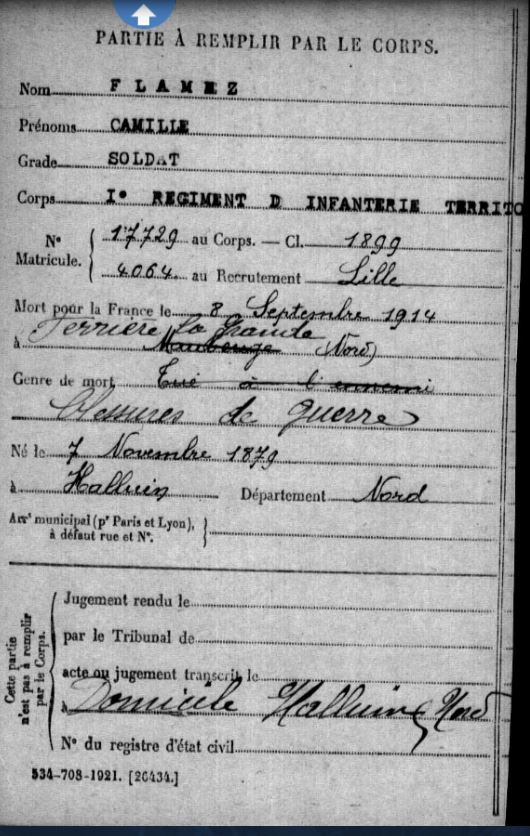 PARTIE À REMPLIR PAR LE CORPS.
Nom FLAMEZ
Prénoms CAMILLE
Grade SOLDAT
Corps Iº REGIMENT D INFANTERIE TERRITO
Nº Matricule. 17729 au Corps. — Cl. 1899
4064 au Recrutement Lille
Mort pour la France le 8 Septembre 1914
Ferrière la Grande
à Maubeuge (Nord)
Genre de mort Tué à l'ennemi
blessures de guerre
Né le 7 Novembre 1879
à Halluin Département Nord
Arrt municipal (pr Paris et Lyon),
à défaut rue et Nº.
Cette partie n'est pas à remplir par le Corps.
Jugement rendu le
par le Tribunal de
acte ou jugement transcrit le
à Domicile Halluin Nord
Nº du registre d'état civil
534-708-1921. [26434.]